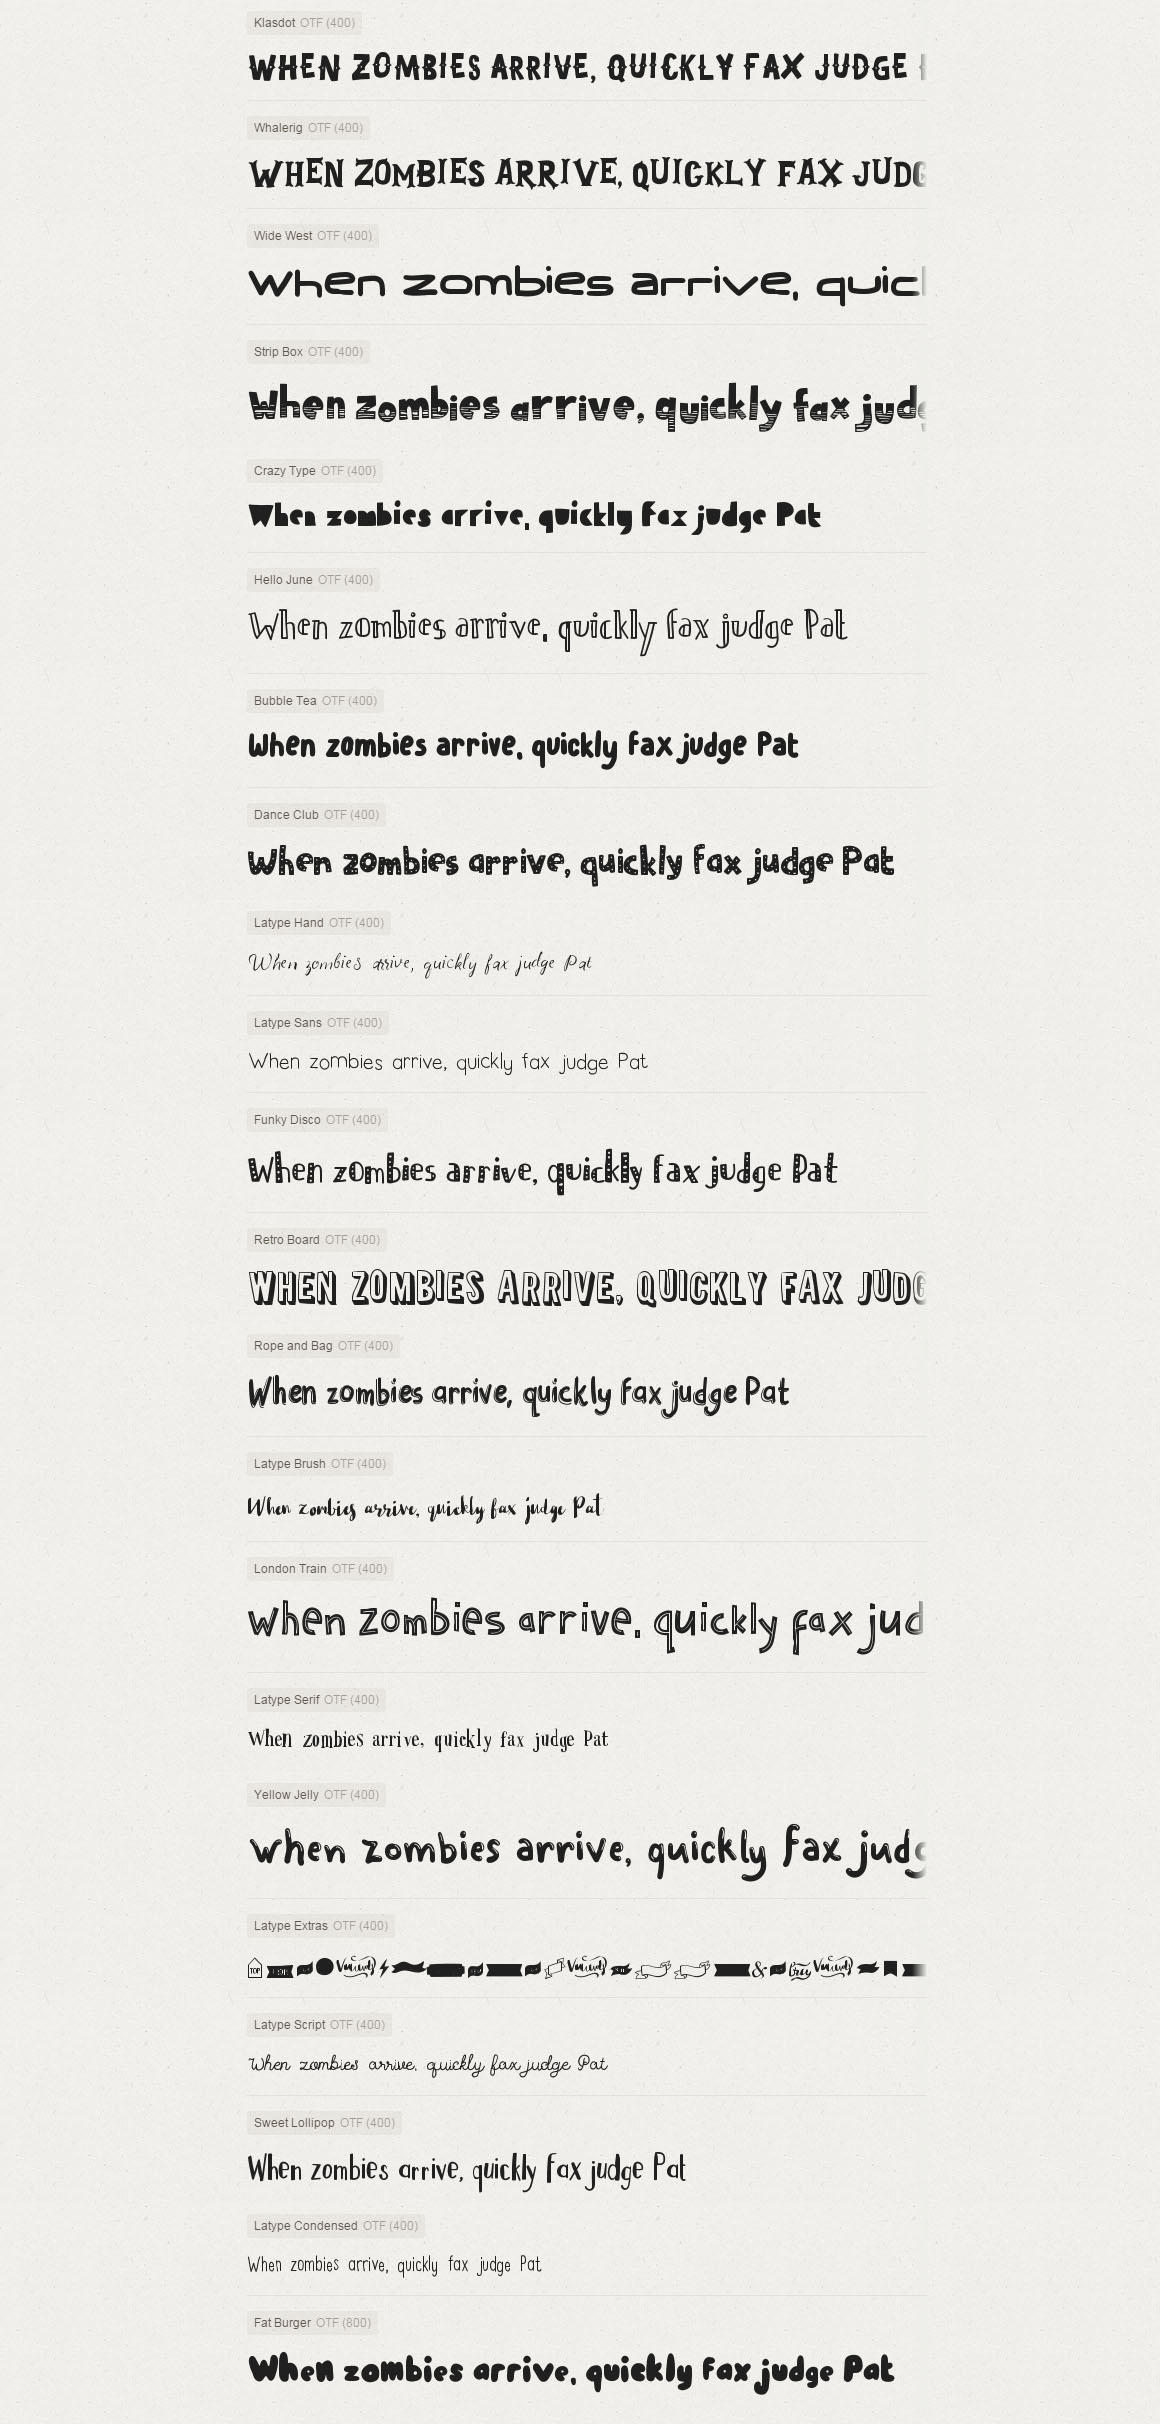 Klasdot OTF (400)
WHEN ZOMBIES ARRIVE, QUICKLY FAX JUDGE
Whalerig OTF (400)
WHEN ZOMBIES ARRIVE, QUICKLY FAX JUDG
Wide West OTF (400)
When zombies arrive, quicl
Strip Box OTF (400)
When zombies arrive, quickly fax judg
Crazy Type OTF (400)
When zombies arrive, quickly fax judge Pat
Hello June OTF (400)
When zombies arrive, quickly fax judge Pat
Bubble Tea OTF (400)
When zombies arrive, quickly fax judge Pat
Dance Club OTF (400)
When zombies arrive, quickly fax judge Pat
Latype Hand OTF (400)
When zombies arrive, quickly fax judge Pat
Latype Sans OTF (400)
When zombies arrive, quickly fax judge Pat
Funky Disco OTF (400)
When zombies arrive, quickly fax judge Pat
Retro Board OTF (400)
WHEN ZOMBIES ARRIVE, QUICKLY FAX JUDG
Rope and Bag OTF (400)
When zombies arrive, quickly fax judge Pat
Latype Brush OTF (400)
When zombies arrive, quickly fax judge Pat
London Train OTF (400)
When zombies arrive, quickly fax jud
Latype Serif OTF (400)
When zombies arrive, quickly fax judge Pat
Yellow Jelly OTF (400)
When zombies arrive, quickly fax judg
Latype Extras OTF (400)
TOP &
Latype Script OTF (400)
When zombies arrive, quickly fax judge Pat
Sweet Lollipop OTF (400)
When zombies arrive, quickly fax judge Pat
Latype Condensed OTF (400)
When zombies arrive, quickly fax judge Pat
Fat Burger OTF (800)
When zombies arrive, quickly fax judge Pat